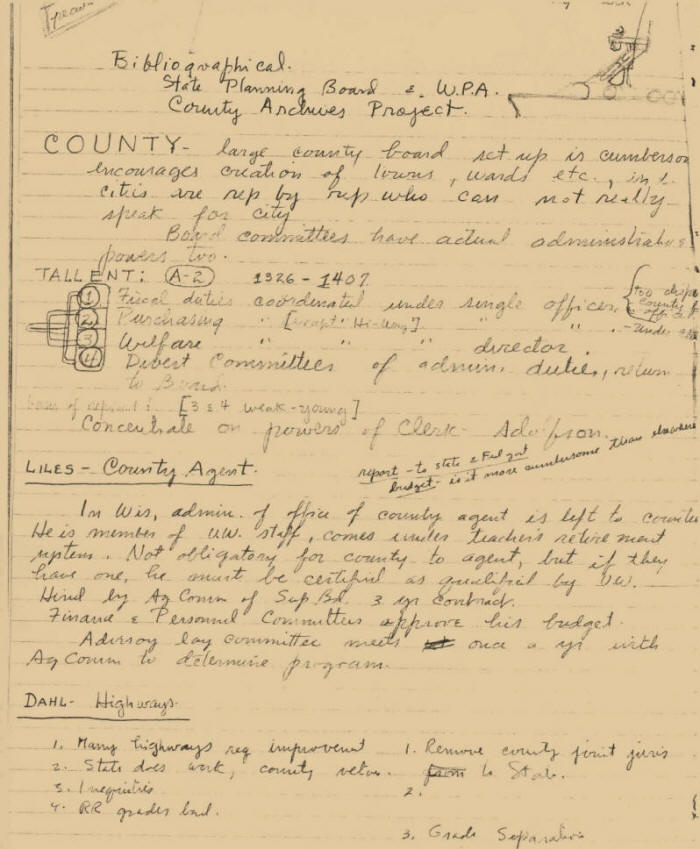 Bibliographical.
State Planning Board & W.P.A.
County Archives Project.
COUNTY - large county board set up is cumberson
encourages creation of towns, wards etc., in t.
cities are rep by rep who can not really
speak for city
Board committees have actual administrative
powers too.
TALLENT: (A-2) 1326 - 1407
1 Fiscal duties coordinated under single officer.
2 Purchasing " [except Hi-way] " "
3 Welfare " " " director.
4 Divest Committees of admin. duties, return
to Board.
[3 & 4 weak-young]
Concentrate on powers of Clerk-
report - to state & Fed govt
budget - is it more cumbersome than elsewhere
LILES - County Agent.
In Wis, admin. of office of county agent is left to counties
He is member of U.W. staff, comes under teachers retirement
system. Not obligatory for county to agent, but if they
have one, he must be certified as qualified by UW.
Hired by Ag Comm of Sup. Bd. 3 yr contract.
Finance & Personnel Committees approve his budget.
Advisory lay committee meets once a yr with
Ag Comm to determine program.
DAHL - Highways.
1. Many highways req improvement
2. State does work, county vetos.
3. Inequities
4. RR grades bad.
1. Remove county joint juris
from to State.
2.
3. Grade Separation